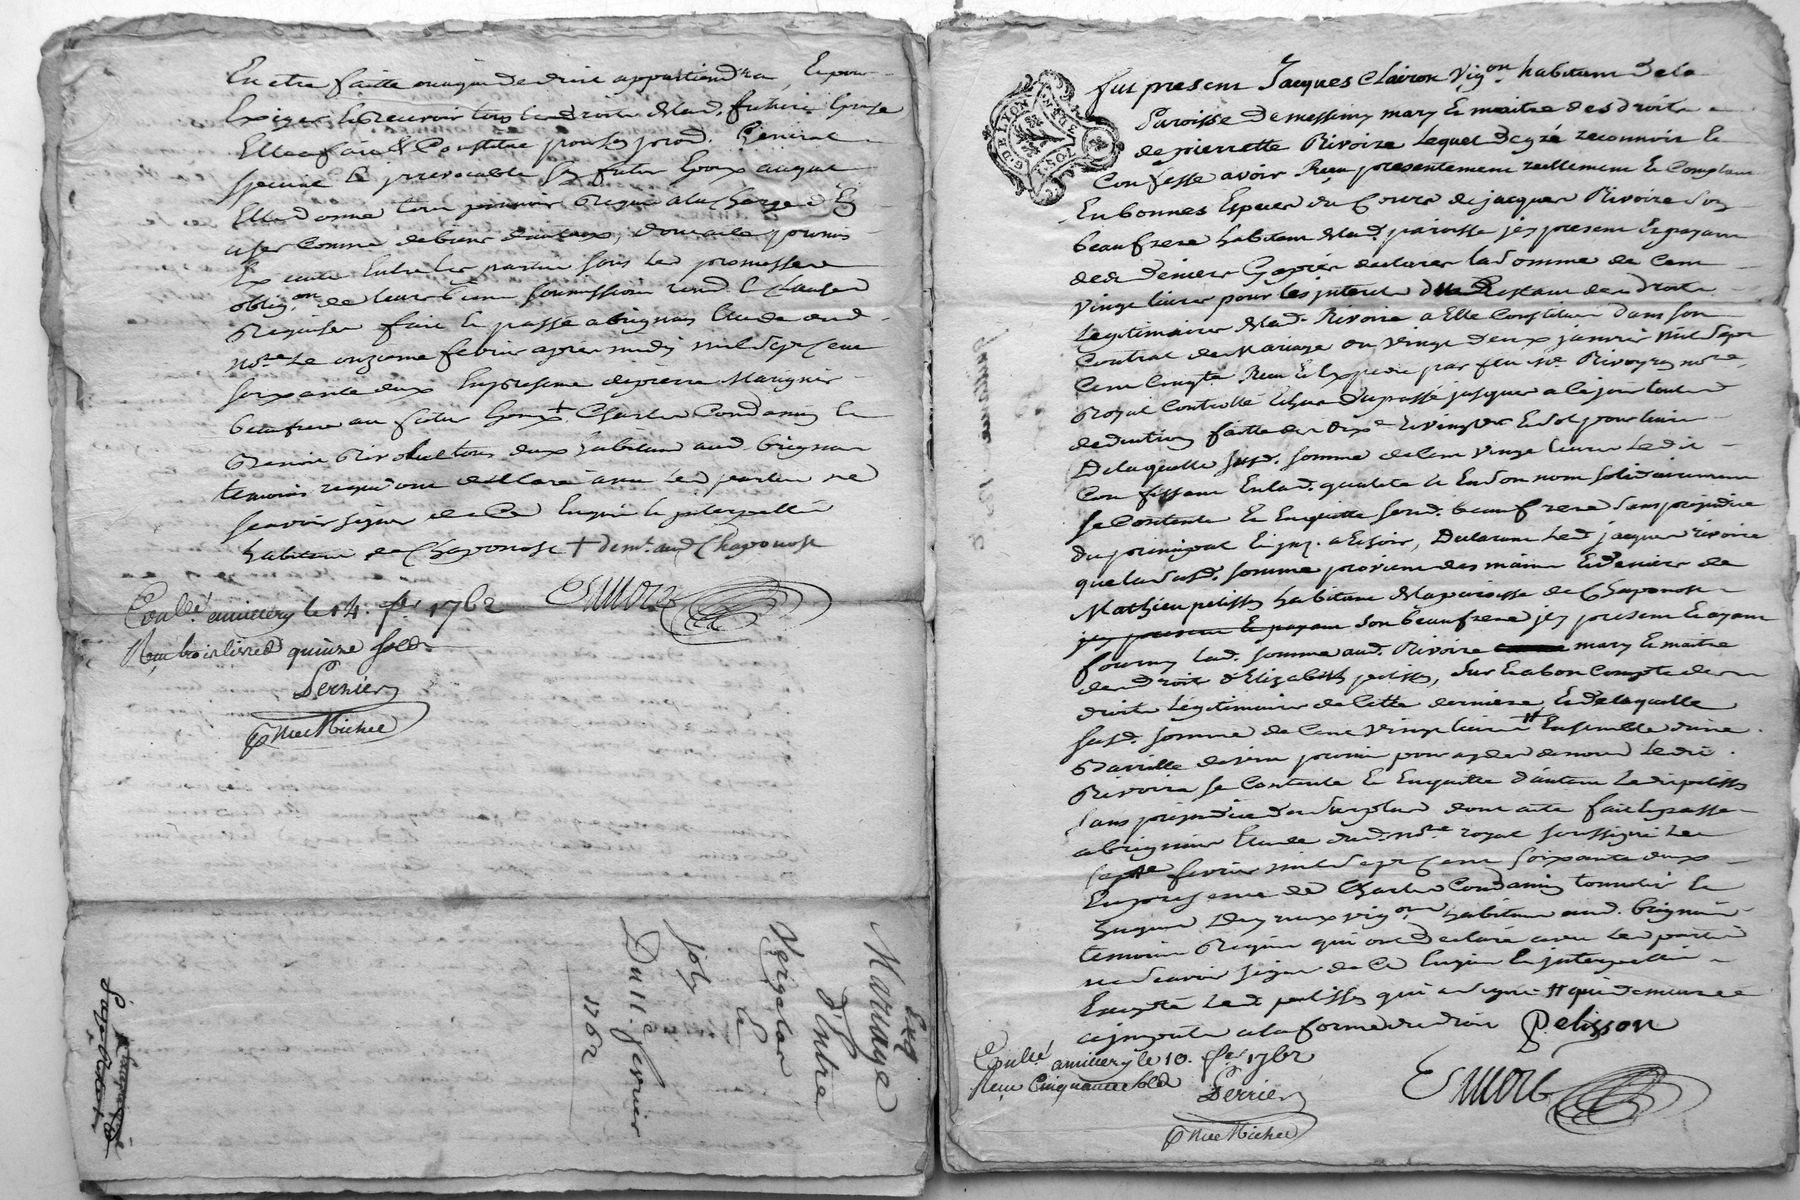 En etre faitte ou aqui de droit appartiendra Et pour
Exiger & recevoir tous les droits de lad. future Epouse
Elle a fait & Constitue pour son procd. General
special & irrevocable son futur Epoux auquel
Elle donne tout pouvoir Requis a la charge d'En
user comme de biens dotaux, dont acte
Ex ecuté Entre les parties sous les promesses
oblig.on de leurs biens soumissions rend. & clauses
Requises fait & passé a brignais Etude dud.
no.re Le onzieme fevrier apres midy mil sept Cent
soixante deux En presence de pierre Marignier
beaufrere au futur Epoux + Charles Condamin &
Benoit habitans aud. brignais
temoins requis qui ont declaré avec les parties ne
scavoir signer de ce Enquis & interpellés
habitant de Chaponost + dem.t aud. Chaponost
Esmore
Con.lé a millery le 14. f.er 1762
Reçu trois livres quinze sols
Perrier
Mariage
D'Entre
Vergelas
&
joly
Du 11.e fevrier
1762
G. DE LYON
fut present Jacques Clairon Vig.on habitant de la
Paroisse de messimy mary & maitre des droits
de pierrette Rivoire Lequel de gré reconnoit &
Confesse avoir Reçu presentement reellement & Comptant
En bonnes Especes du Cours de jacques Rivoire son
beaufrere habitant de lad. paroisse icy present & payant
de ses deniers declarer la somme de Cent
vingt livres pour les interets du Restant des droits
Legitimaires de lad. Rivoire a Elle Constitués dans son
Contrat de Mariage du vingt deux janvier mil sept
Cent Cinq.te Reçu & Expedié par feu M.e no.re
Royal Controllé Echus du passé jusques a ce jour toutes
deductions faittes des dix.e & vingt.es & sol pour livre
De laquelle susd. somme de Cent vingt livres Ledit
Confessant En lad. qualité & En son nom solidairement
se Contente & En quitte sond. beaufrere sans prejudice
du principal & int. a Echoir, Declarant Led. jacques rivoire
que la susd. somme provient des mains & deniers de
Mathieu pelisson habitant de la paroisse de Chaponost
icy present & payant son beaufrere icy present & ayant
fourny lad. somme aud. Rivoire comme mary & maitre
des droits d'Elizabeth pelisson, sur & a bon Compte des
droits Legitimaires de Cette derniere, & de laquelle
susd. somme de Cent vingt livres Ensemble d'une
Barrille de vin
Rivoire se Contente & En quitte d'autant Ledit pelisson
sans prejudice du surplus dont acte fait & passé
a brignais Etude dud. no.re royal soussigné Le
sept.e fevrier mil sept Cent soixante deux
En presence de Charles Condamin tonnelier &
vig.on habitans aud. brignais
temoins Requis qui ont declaré avec Les parties
ne scavoir signer de ce Enquis & interpellés
Excepté Led. pelisson qui a signé qui demeurera
a la forme du droit P. elisson
Con.llé a millery le 10. f.er 1762
Reçu Cinquante sols
Perrier
Esmore